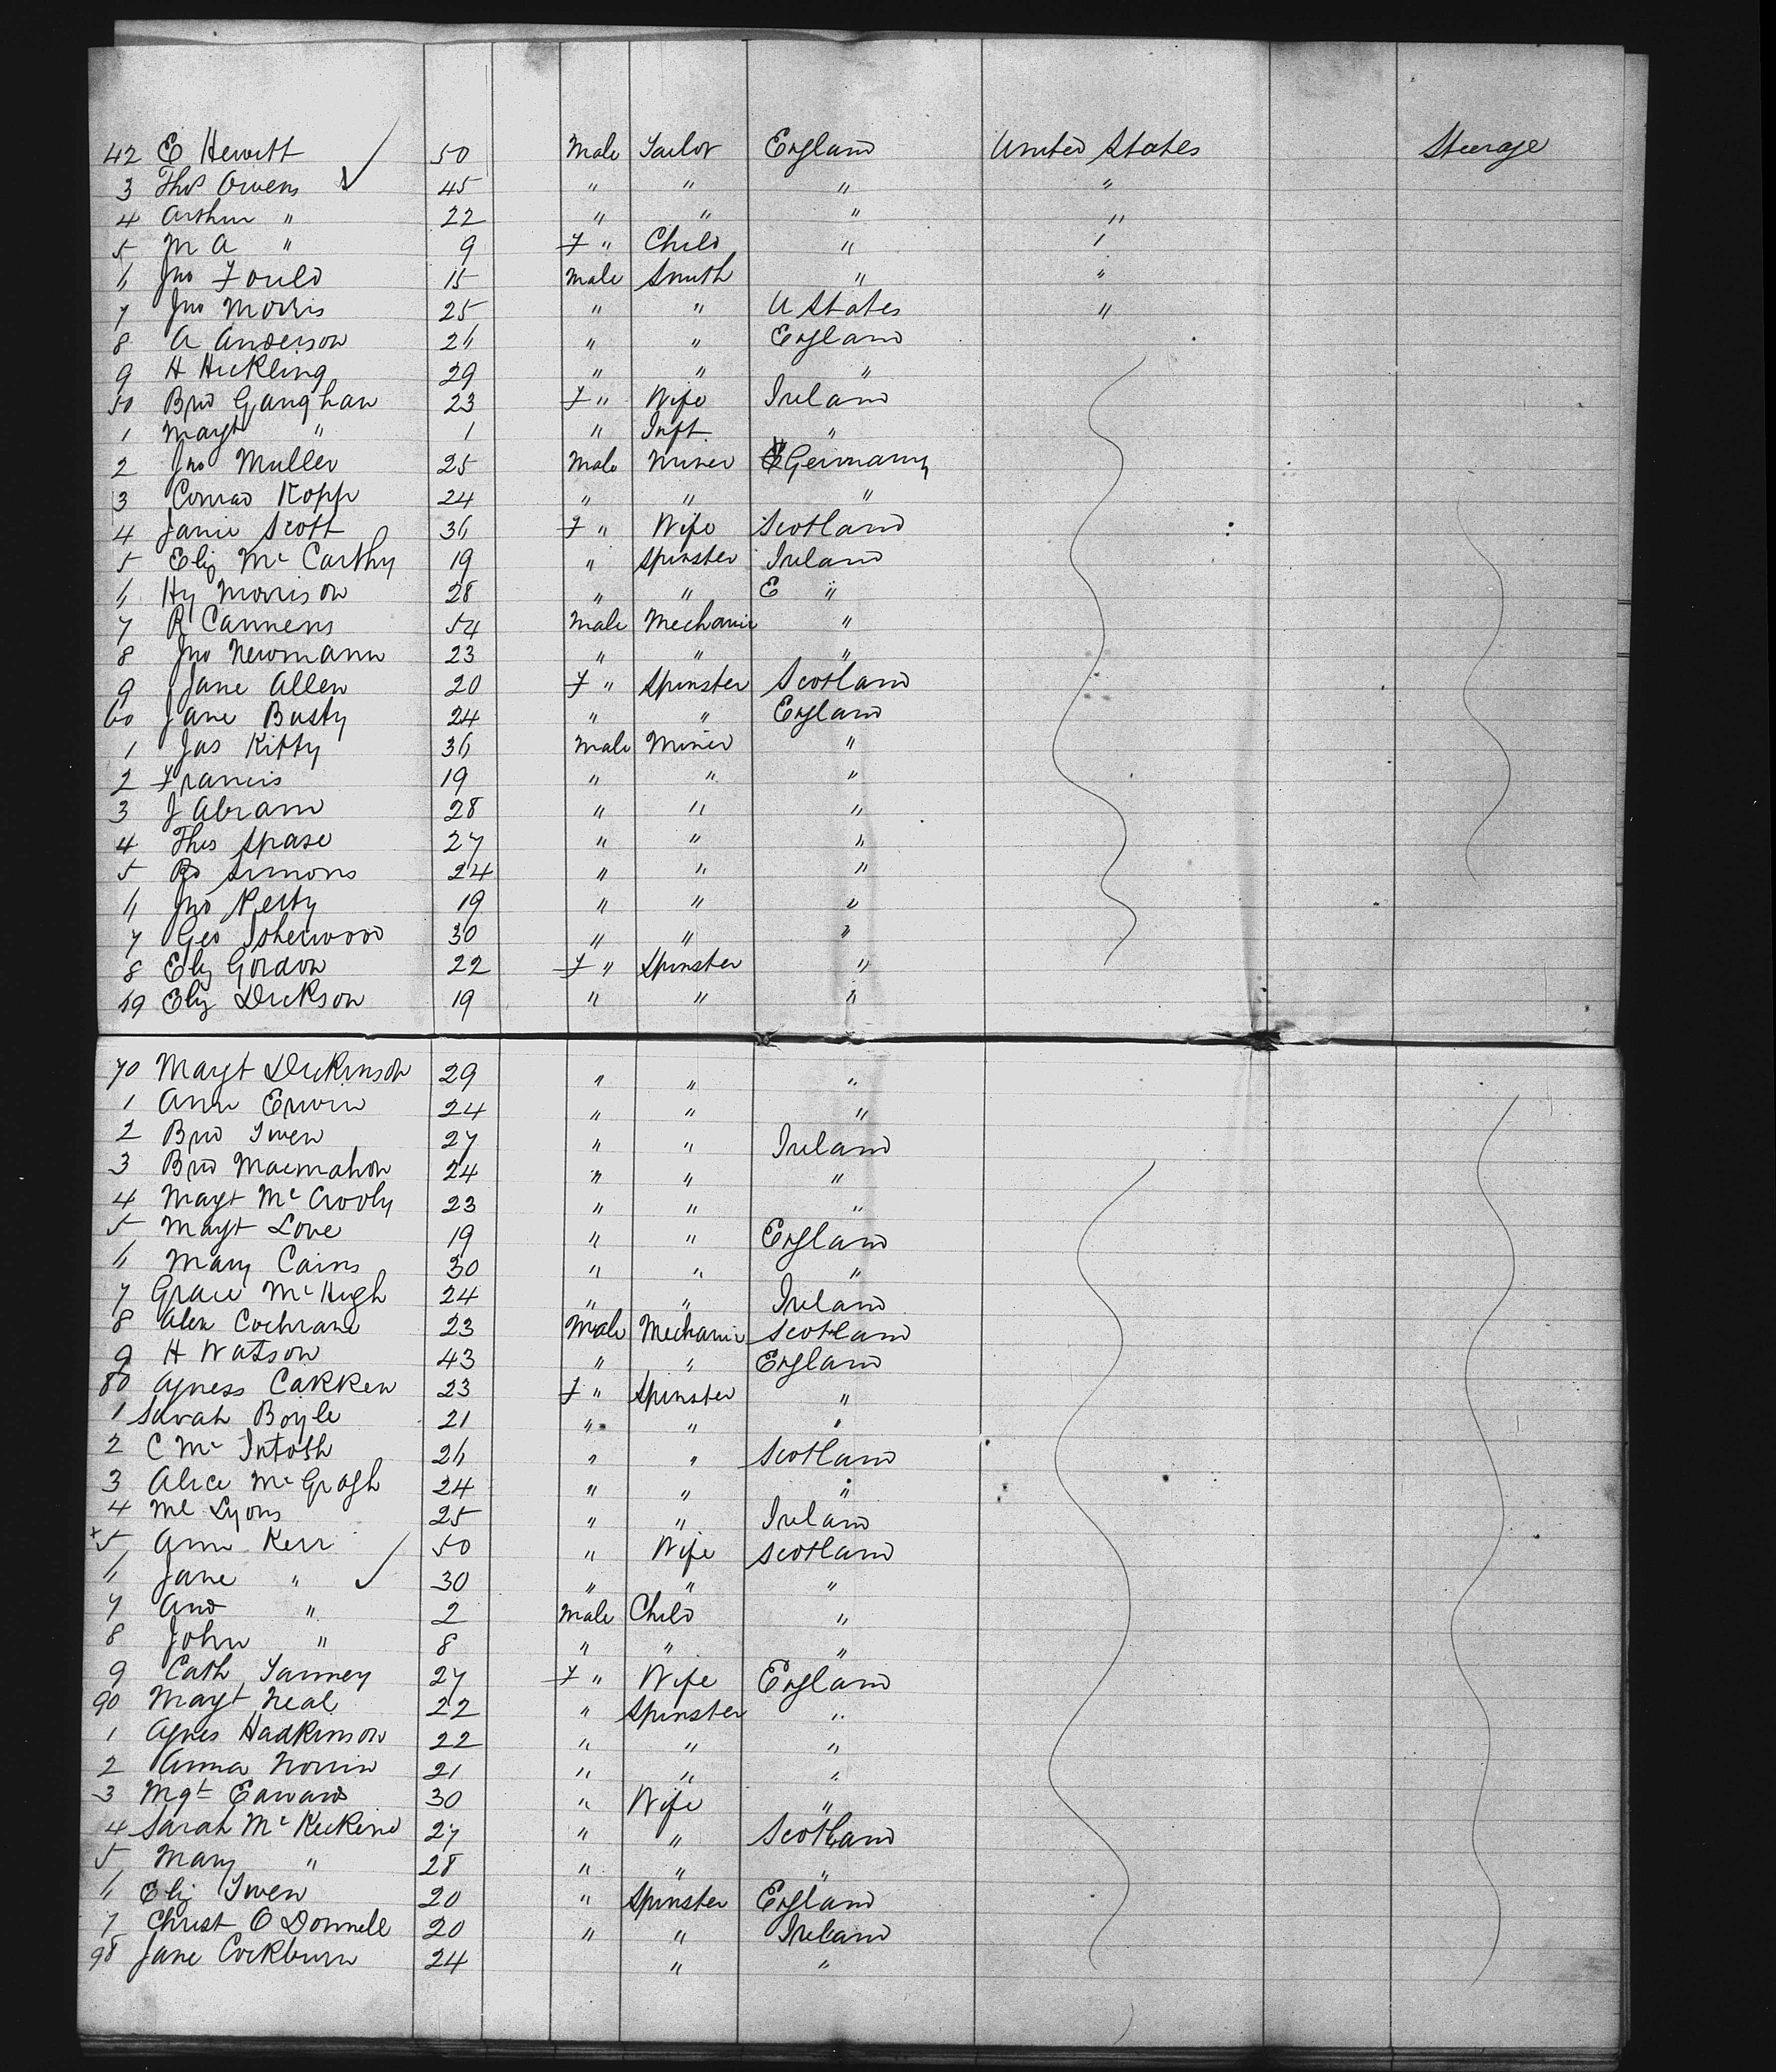 42 E Hewitt 50 Male Tailor England United States Steerage
3 Thos Owens 45 " " " "
4 Arthur " 22 " " " "
5 M A " 9 F " Child " "
6 Jno Fould 15 Male Smith " "
7 Jno Morris 25 " " U States "
8 A Anderson 26 " " England
9 H Hickling 29 " " "
50 Brid Ganghan 23 F " Wife Ireland
1 Margt " 1 " Inft. "
2 Jno Muller 25 Male Miner Germany
3 Conrad Kopp 24 " " "
4 Janie Scott 36 F " Wife Scotland
5 Eliz Mc Carthy 19 " Spinster Ireland
6 Hy Morrison 28 " " E "
7 R Cannens 54 Male Mechanic "
8 Jno Newmann 23 " " "
9 Jane Allen 20 F " Spinster Scotland
60 Jane Busty 24 " " England
1 Jas Kitty 36 Male Miner "
2 Francis 19 " " "
3 J Abram 28 " " "
4 Thos Spase 27 " " "
5 Rd Simons 24 " " "
6 Jno Petty 19 " " "
7 Geo Isherwood 30 " " "
8 Eliz Gordon 22 F " Spinster "
69 Eliz Dickson 19 " " "
70 Margt Dickinson 29 " " "
1 Ann Erwin 24 " " "
2 Brid Iwen 27 " " Ireland
3 Brid Macmahon 24 " " "
4 Margt Mc Crooly 23 " " "
5 Margt Love 19 " " England
6 Mary Cains 30 " " "
7 Grace Mc Hugh 24 " " Ireland
8 Alex Cochrane 23 Male Mechanic Scotland
9 H Watson 43 " " England
80 Agness Cakken 23 F " Spinster "
1 Sarah Boyle 21 " " "
2 C Mc Intosh 26 " " Scotland
3 Alice Mc Grogh 24 " " "
4 Ml Lyons 25 " " Ireland
x5 Ann Kerr 50 " Wife Scotland
6 Jane " 30 " " "
7 And " 2 Male Child "
8 John " 8 " " "
9 Cath Tanney 27 F " Wife England
90 Margt Neal 22 " Spinster "
1 Agnes Hadkinson 22 " " "
2 Anna Norrin 21 " " "
3 Mgt Edwards 30 " Wife "
4 Sarah Mc Keckene 27 " " Scotland
5 Mary " 28 " " "
6 Eliz Iwen 20 " Spinster England
7 Christ O Donnell 20 " " Ireland
98 Jane Cockburn 24 " "